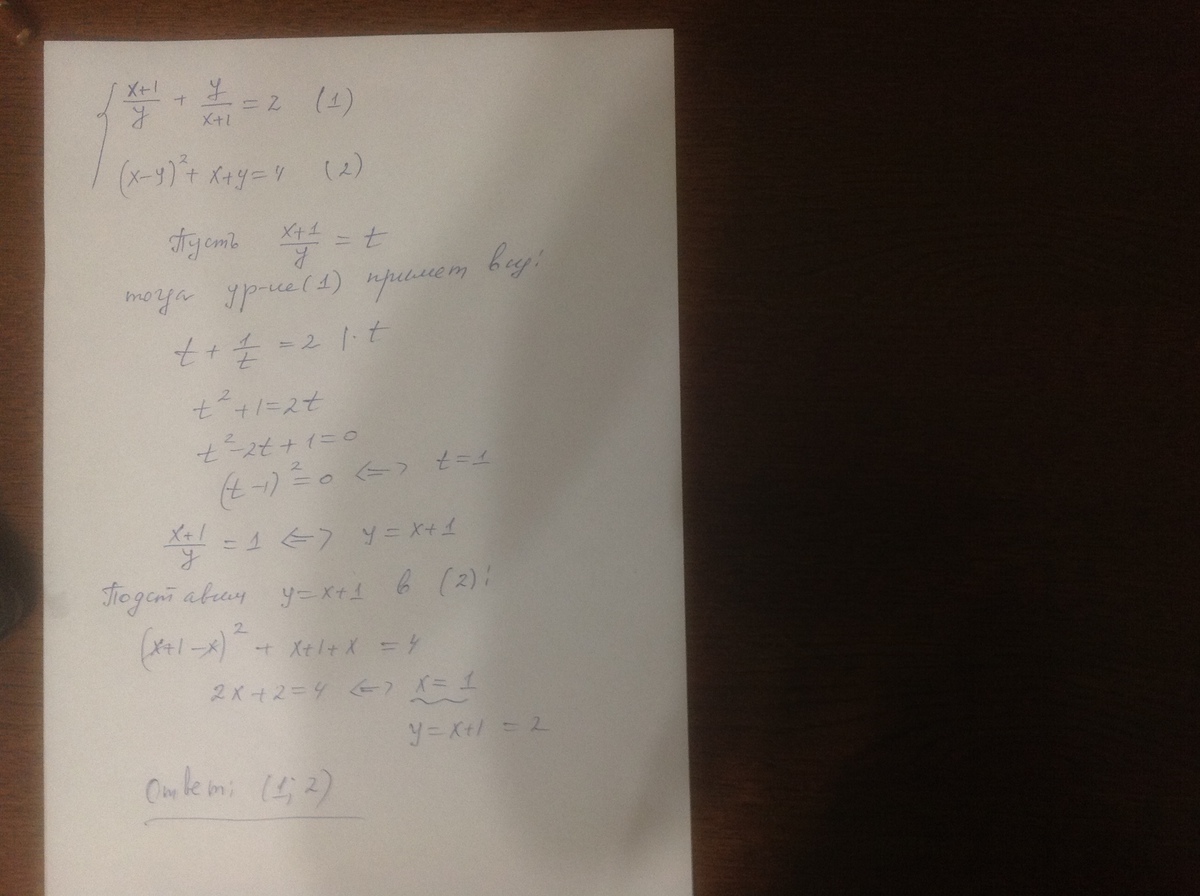 { x+1/y + y/x+1 = 2 (1)
(x-y)² + x+y = 4 (2)
Пусть x+1/y = t
тогда ур-ие (1) примет вид:
t + 1/t = 2 |· t
t² + 1 = 2t
t² - 2t + 1 = 0
(t-1)² = 0 <=> t = 1
x+1/y = 1 <=> y = x+1
Подставим y = x+1 в (2):
(x+1-x)² + x+1+x = 4
2x + 2 = 4 <=> x = 1
y = x+1 = 2
Ответ: (1; 2)